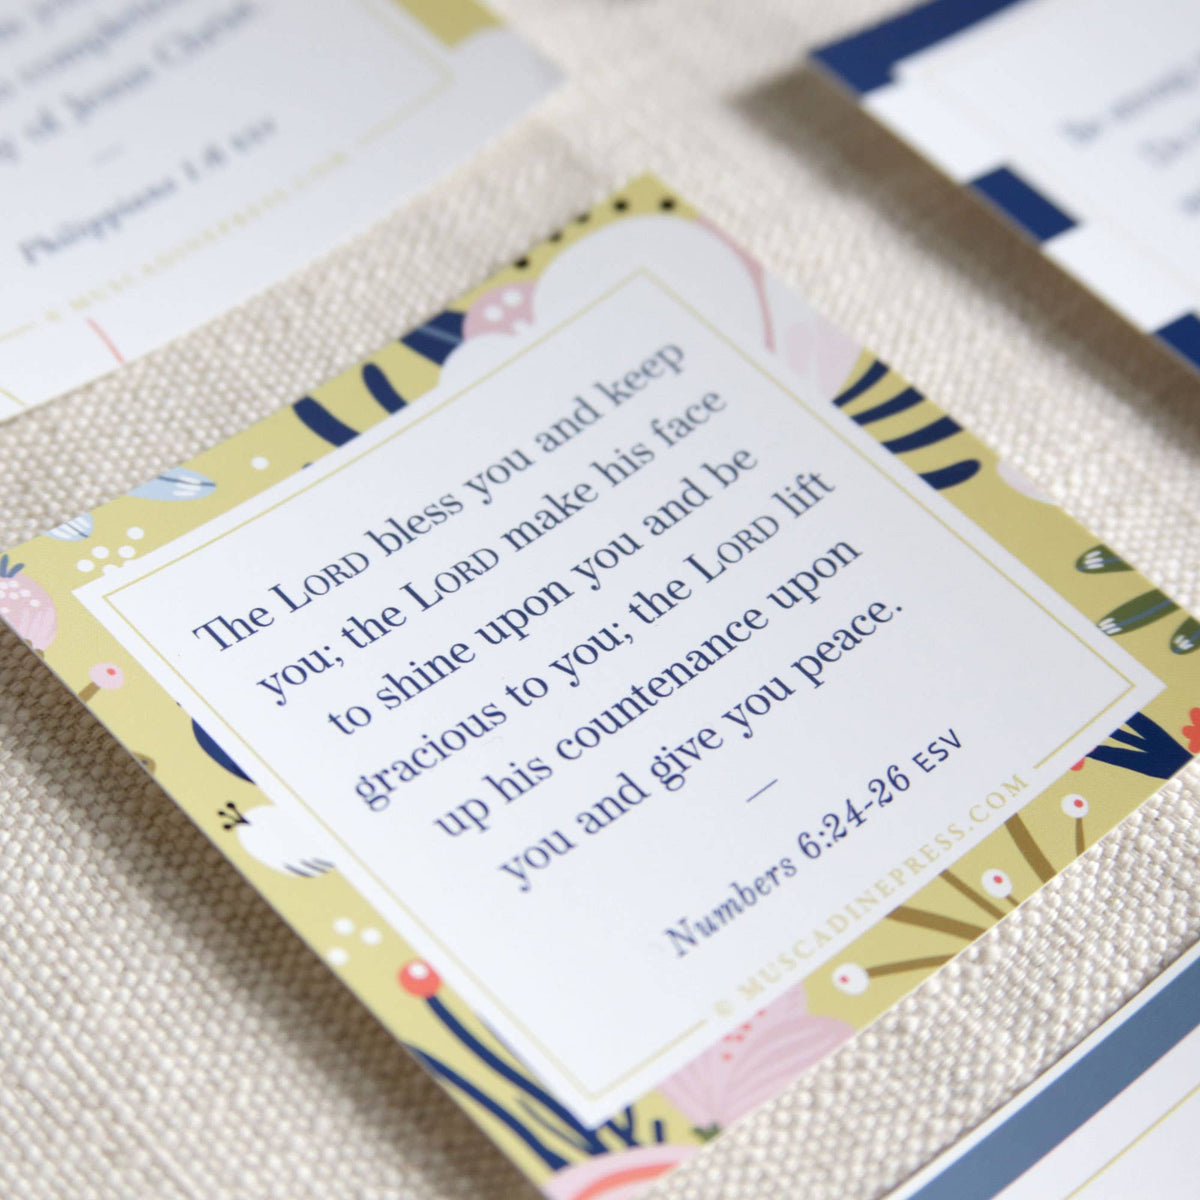 of Jesus Christ
—
Philippians 1:6 ESV
© MUSCADINEPRESS.COM
The LORD bless you and keep
you; the LORD make his face
to shine upon you and be
gracious to you; the LORD lift
up his countenance upon
you and give you peace.
—
Numbers 6:24-26 ESV
© MUSCADINEPRESS.COM